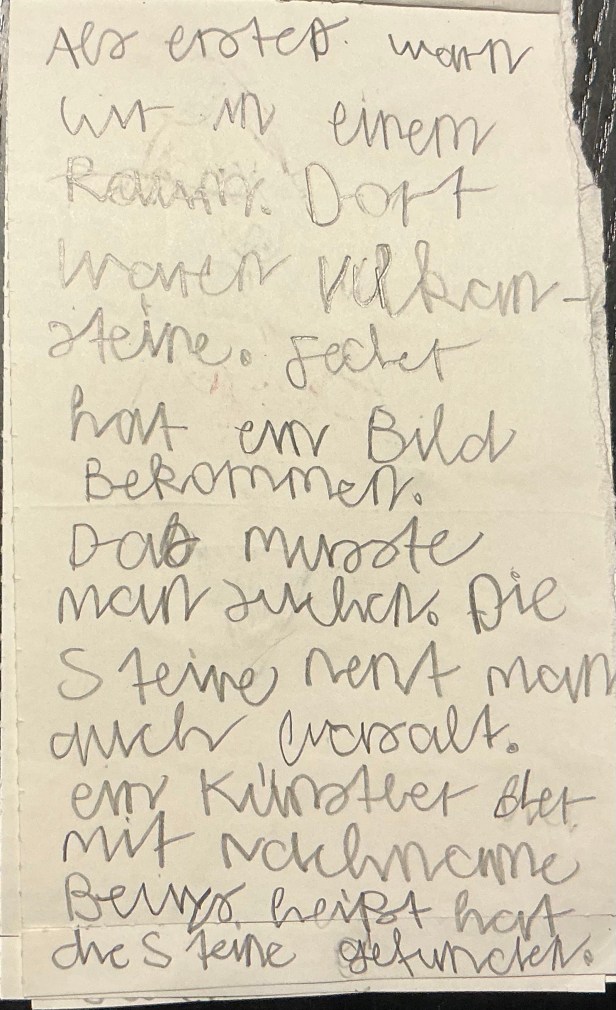 Als erstes warn
wir in einem
Raum. Dort
waren Vulkan-
steine. jeder
hat ein Bild
Bekommen.
Das musste
man suchen. Die
Steine nent man
auch wasalt.
ein Künstler der
mit Nachname
Beuys heißt hat
die Steine gefunden.